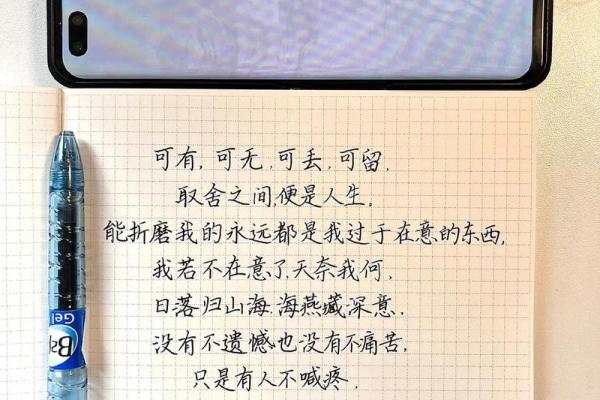 可有,可无,可丢,可留,
取舍之间,便是人生。
能折磨我的永远都是我过于在意的东西,
我若不在意了,天奈我何,
日落归山海,海燕藏深意,
没有不遗憾也没有不痛苦,
只是有人不喊疼.
B2P
Gel